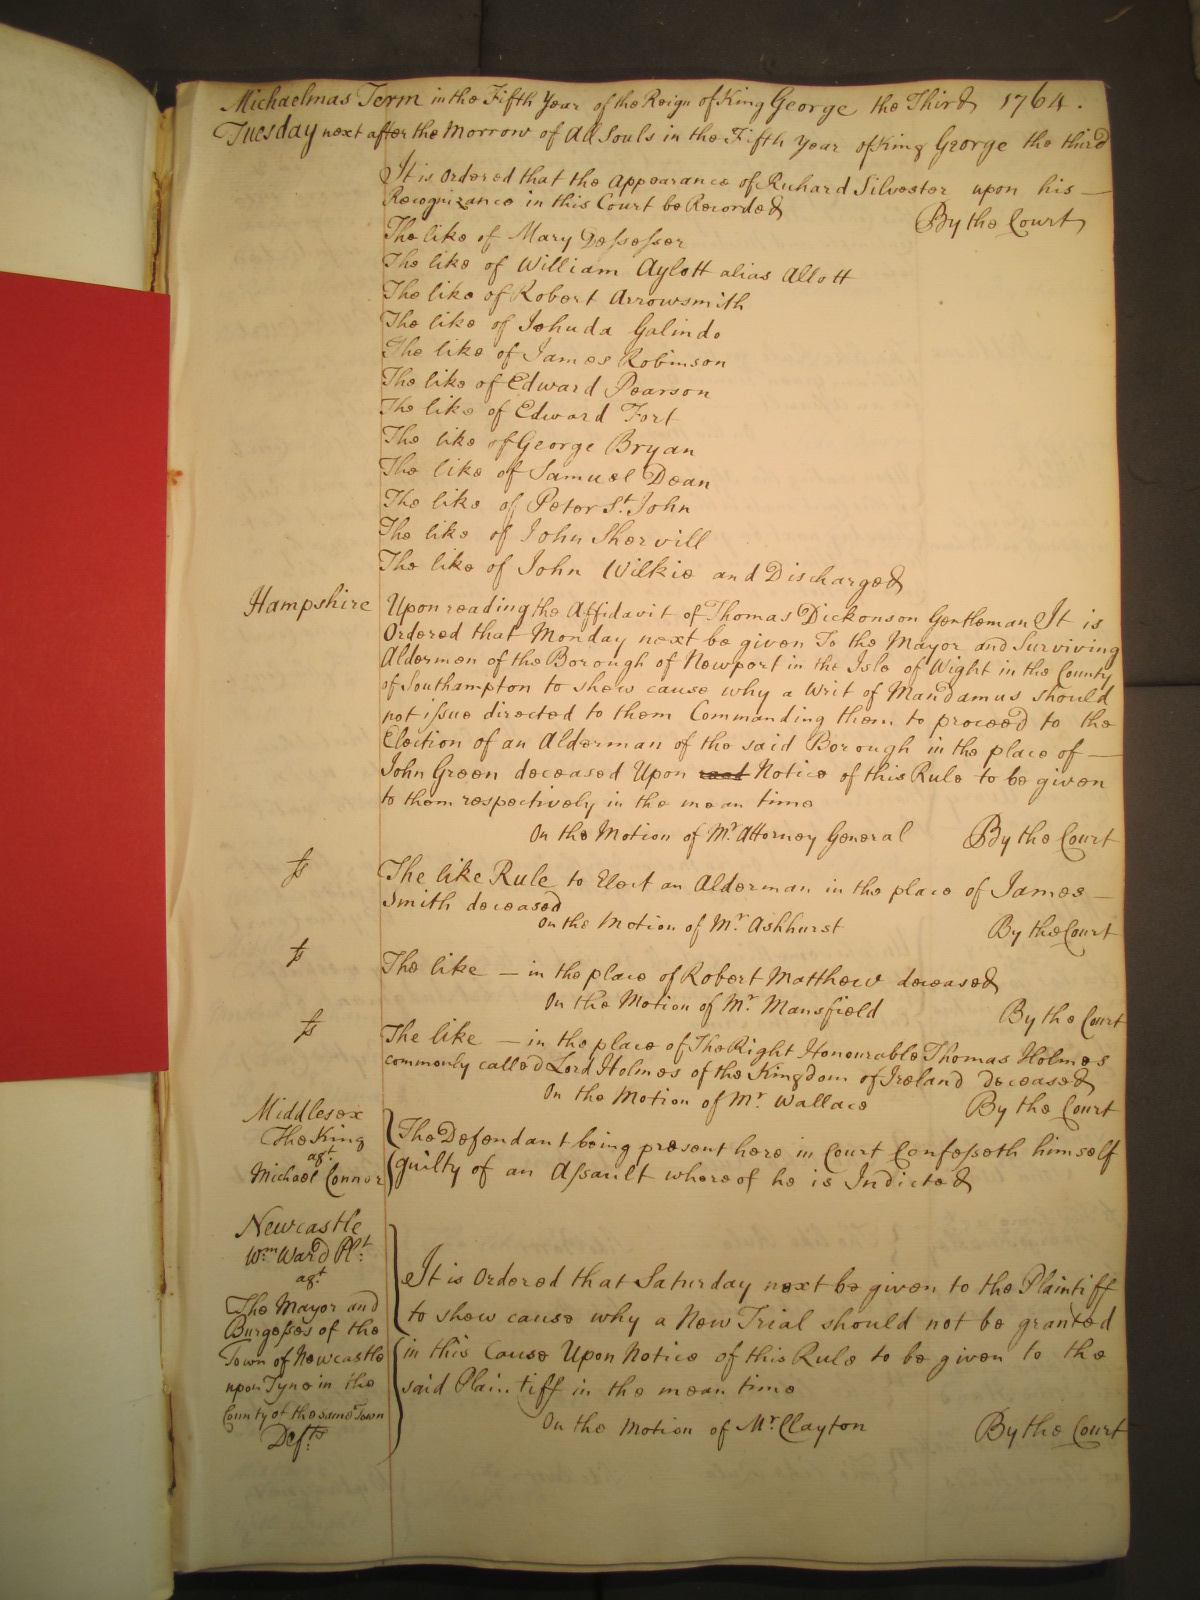 Michaelmas Term in the Fifth Year of the Reign of King George the Third 1764.
Tuesday next after the Morrow of All Souls in the Fifth Year of King George the third
It is Ordered that the Appearance of Richard Silvester upon his —
Recognizance in this Court be Recorded
By the Court
The like of Mary Deſseſser
The like of William Aylott alias Allott
The like of Robert Arrowsmith
The like of Jehuda Galindo
The like of James Robinson
The like of Edward Pearson
The like of Edward Fort
The like of George Bryan
The like of Samuel Dean
The like of Peter St. John
The like of John Shervill
The like of John Wilkie and Discharged
Hampshire
Upon reading the Affidavit of Thomas Dickonson Gentleman It is
Ordered that Monday next be given To the Mayor and Surviving
Aldermen of the Borough of Newport in the Isle of Wight in the County
of Southampton to shew cause why a Writ of Mandamus should
not iſsue directed to them Commanding them to proceed to the
Election of an Alderman of the said Borough in the place of —
John Green deceased Upon Notice of this Rule to be given
to them respectively in the mean time
On the Motion of Mr. Attorney General By the Court
ſs
The like Rule to Elect an Alderman in the place of James —
Smith deceased
On the Motion of Mr. Ashhurst By the Court
ſs
The like — in the place of Robert Matthew deceased
On the Motion of Mr. Mansfield By the Court
ſs
The like — in the place of The Right Honourable Thomas Holmes
commonly called Lord Holmes of the Kingdom of Ireland deceased
On the Motion of Mr. Wallace By the Court
Middlesex
The King
agt.
Michael Connor
The Defendant being present here in Court Confeſseth himself
guilty of an Aſsault whereof he is Indicted
Newcastle
Wm. Ward Plt.
agt.
The Mayor and
Burgeſses of the
Town of Newcastle
upon Tyne in the
County of the same Town
Defts.
It is Ordered that Saturday next be given to the Plaintiff
to shew cause why a New Trial should not be granted
in this Cause Upon Notice of this Rule to be given to the
said Plaintiff in the mean time
On the Motion of Mr. Clayton By the Court